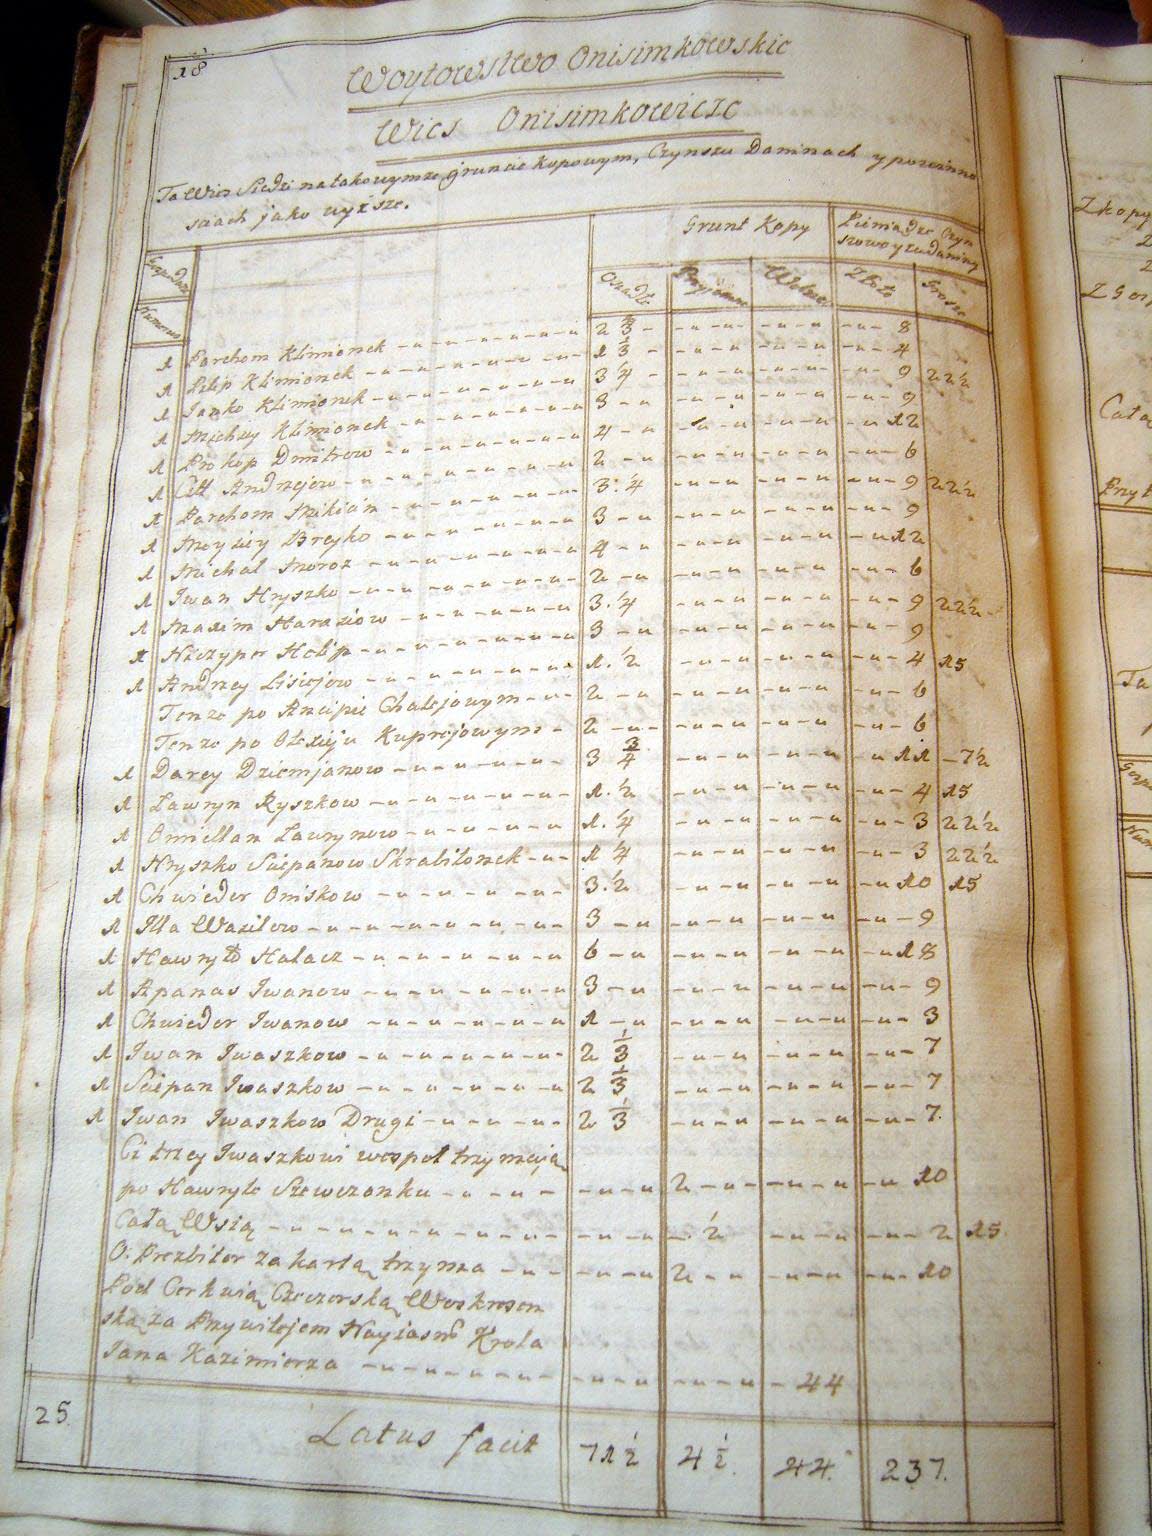 18
Woytowstwo Onisimkowskie
Wies Onisimkowicze
Ta Wies Siedzi na takowymze gruncie kopowym, Czynszu Daninach y powinno
sciach jako wyzsze.
Grunt Kopy
Pieniądze Czyn
szowe y za daniny
Numerus
Osiadłe
Przyiemne
Wolne
Złote
Grosze
1 Parchom Klimionek 2 1/3 8
1 Pilip Klimionek 1 1/3 4
1 Janko Klimionek 3 1/4 9 22 1/2
1 Michey Klimionek 3 9
1 Prokop Dmitrow 4 12
1 Andrzejow 2 6
1 Parchom Mikian 3 1/4 9 22 1/2
1 Moysiey Brejko 3 9
1 Michal Moroz 4 12
1 Iwan Hryszko 2 6
1 Maxim Haraziow 3 1/4 9 22 1/2
1 Niczyper Holip 3 9
1 Andrzey Lisiejow 1 1/2 4 15
Tenze po Ancipie Chalejowym 2 6
Tenze po Olexieju Kuprejowym 2 6
1 Darey Dziemjanow 3 3/4 11 7 1/2
1 Lawryn Ryszkow 1 1/2 4 15
1 Omiellan Lawrynow 1 1/4 3 22 1/2
1 Hryszko Sciepanow Skrabilonek 1 1/4 3 22 1/2
1 Chwieder Oniskow 3 1/2 10 15
1 Illa Wasilew 3 9
1 Hawryło Halacz 6 18
1 Apanas Iwanow 3 9
1 Chwieder Iwanow 1 3
1 Iwan Iwaszkow 2 1/3 7
1 Sciepan Iwaszkow 2 1/3 7
1 Iwan Iwaszkow Drugi 2 1/3 7
Ci trzey Iwaszkowi wespoł trzymaią
po Hawryle Szewczonku 2 10
Całą Wsią 1/2 2 15
O: Prezbiter za kartą trzyma 2 10
Pod Cerkwią Czeczerską Woskresen
ską za Przywilejem Nayiasn̄o Krola
Jana Kazimierza 44
25. Latus facit 71 1/2 4 1/2. 44. 237.
Zkopy
Cała
Przyi
Ta